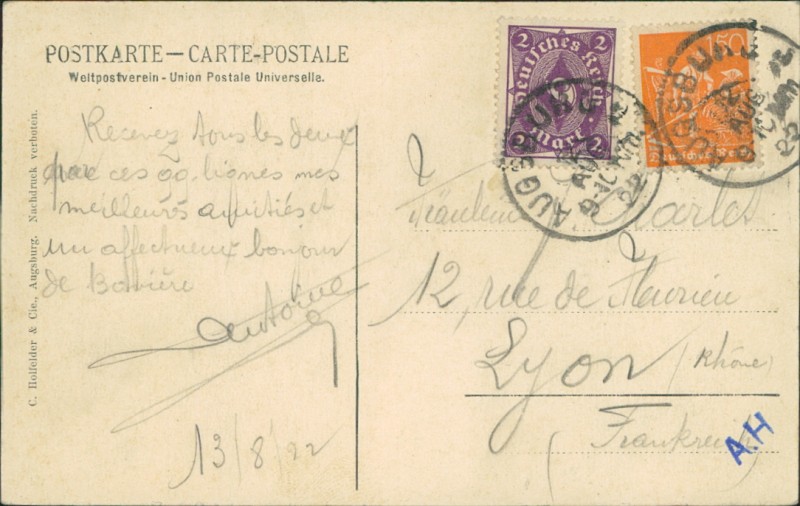 POSTKARTE — CARTE-POSTALE
Weltpostverein - Union Postale Universelle.
C. Holfelder & Cie., Augsburg. Nachdruck verboten.
Recevez tous les deux
par ces qq. lignes mes
meilleurs amitiés et
un affectueux bonjour
de Bavière
Antoine
13/8/22
2 2
Deutsches Reich
5
Mark
150
AUGSBURG 2
AUG
22
AUGSBURG 2
AUG
22
Fräulein Charlet
12, rue de
Lyon (Rhône)
(Frankreich)
A.H